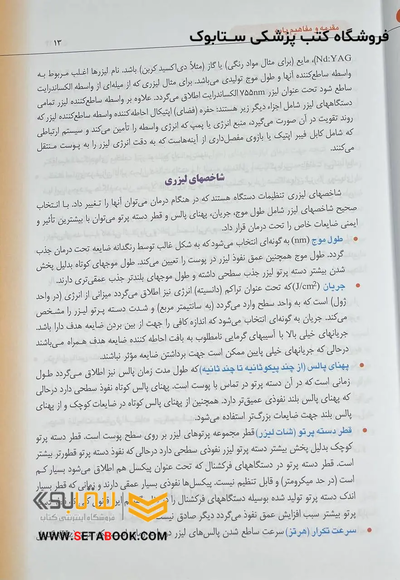 مقدمه و مفاهیم پایه
۱۳
فروشگاه کتب پزشکی ستابوک
Nd:YAG)، مایع (برای مثال مواد رنگی) یا گاز (مثلاً دی‌اکسید کربن) باشد. نام لیزرها اغلب مربوط به
واسطه ساطع‌کننده آنها و طول موج تولیدی می‌باشد. برای مثال لیزری که از میله‌ای از واسطه الکساندرایت
ساطع شود تحت عنوان لیزر ۷۵۵nm الکساندرایت اطلاق می‌گردد. علاوه بر واسطه ساطع‌کننده لیزر تمامی
دستگاههای لیزر شامل اجزاء دیگر زیر هستند: حفره (فضای) اپتیکال احاطه کننده واسطه ساطع‌کننده لیزر که
روند تقویت در آن صورت می‌گیرد، منبع انرژی یا پمپ که انرژی واسطه را تأمین می‌کند و سیستم ارتباطی
که شامل کابل فیبر اپتیک یا بازوی مفصل‌داری از آینه‌هاست که به دقت انرژی لیزر را به پوست منتقل
می‌کنند.
شاخصهای لیزری
شاخصهای لیزری تنظیمات دستگاه هستند که در هنگام درمان می‌توان آنها را تغییر داد. با انتخاب
صحیح شاخصهای لیزر شامل طول موج، جریان، پهنای پالس و قطر دسته پرتو می‌توان با بیشترین تأثیر و
ایمنی ضایعات خاص را تحت درمان قرار داد.
• طول موج (nm) به گونه‌ای انتخاب می‌شود که به شکل غالب توسط رنگدانه ضایعه تحت درمان جذب
گردد. طول موج همچنین عمق نفوذ لیزر در پوست را تعیین می‌کند. طول موجهای کوتاه بدلیل پخش
شدن بیشتر دسته پرتو لیزر جذب سطحی داشته و طول موجهای بلندتر جذب عمقی‌تری دارند.
• جریان (J/cm²) که تحت عنوان تراکم (دانسیته) انرژی نیز اطلاق می‌گردد میزانی از انرژی (در واحد
ژول) است که به واحد سطح وارد می‌گردد (به سانتیمتر مربع) و شدت دسته پرتو لیزر را مشخص
می‌کند. جریان به گونه‌ای انتخاب می‌شود که اندازه کافی را جهت از بین بردن ضایعه هدف دارا باشد.
جریانهای خیلی بالا با آسیبهای گرمایی نامطلوب به بافت احاطه کننده ضایعه هدف همراه می‌باشند
درحالی که جریانهای خیلی پایین ممکن است جهت برداشتن ضایعه مؤثر نباشند.
• پهنای پالس (از چند پیکوثانیه تا چند ثانیه) که طول مدت زمان پالس نیز اطلاق می‌گردد طول
زمانی است که در آن دسته پرتو در تماس با پوست است. پهنای پالس کوتاه نفوذ سطحی دارد درحالی
که پهنای پالس بلند نفوذی عمیق‌تر دارد. همچنین از پهنای پالس کوتاه در ضایعات کوچک و از پهنای
پالس بلند جهت ضایعات بزرگ‌تر استفاده می‌شود.
• قطر دسته پرتو (شات لیزر) قطر مجموعه پرتوهای لیزر بر روی سطح پوست است. قطر دسته پرتو
کوچک بدلیل پخش بیشتر دسته پرتو لیزر نفوذی سطحی دارد درحالی که نفوذ دسته پرتو قطورتر بیشتر
است. قطر دسته پرتو در دستگاههای فرکشنال که تحت عنوان پیکسل هم اطلاق می‌شود بسیار کم
است (در حد میکرومتر) و قابل تنظیم نیست. پیکسل‌ها نفوذی بسیار عمقی دارند و زمانی که قطر بسیار
اندک دسته پرتو تولید شده بوسیله دستگاههای فرکشنال را
پرتو بیشتر سبب افزایش عمق نفوذ می‌گردد دیگر صادق نیست.
• سرعت تکرار (هرتز) سرعت ساطع شدن پالس‌های لیزر
ستابوک
فروشگاه اینترنتی کتاب
WWW.SETABOOK.COM